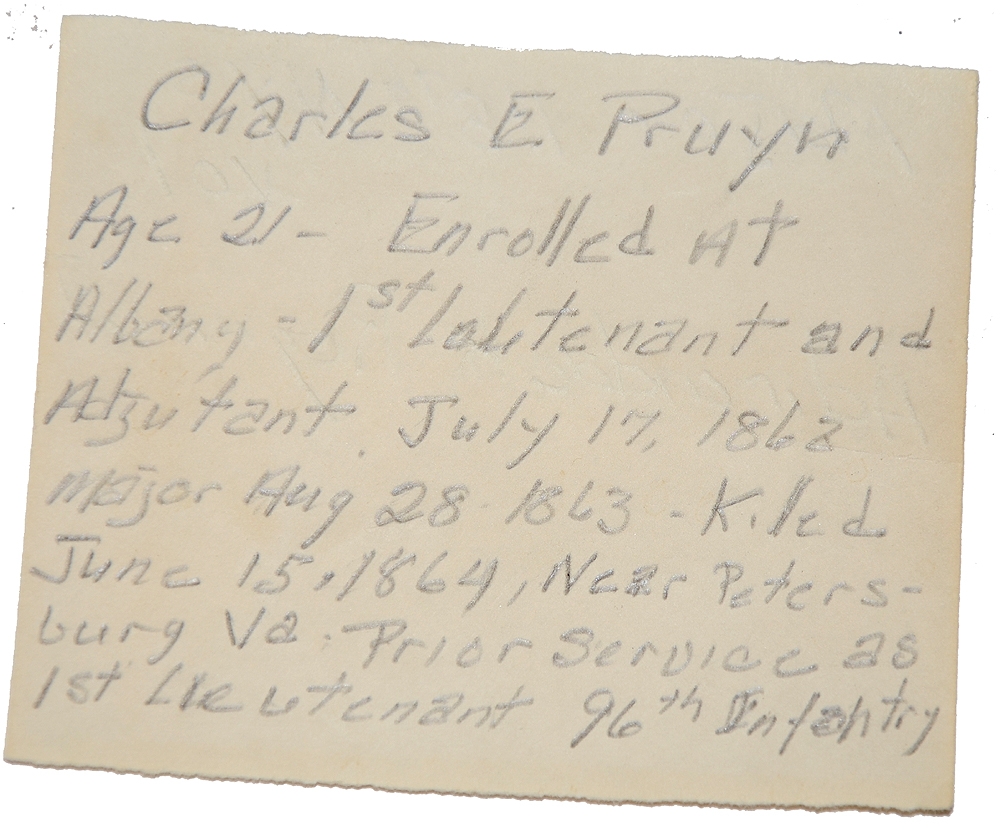 Charles E Pruyn
Age 21- Enrolled At
Albany - 1st Leutenant and
Adjutant. July 17, 1862
Major Aug 28 1863 - Killed
June 15, 1864, Near Peters-
burg Va. Prior Service as
1st Lieutenant 96th Infantry